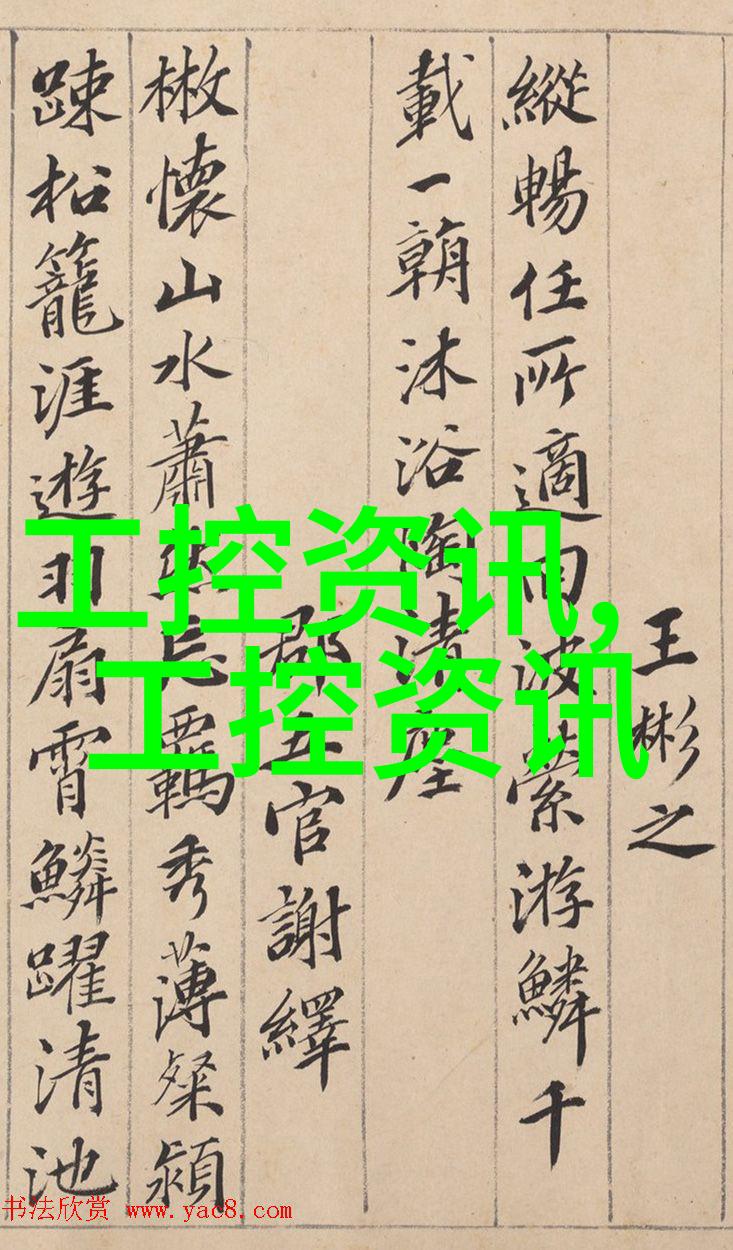 王彬之
縱暢任所適回波縈游鱗千
載一朝沐浴陶清塵
郡五官謝繹
散懷山水蕭然忘羈秀薄粲穎
疎松籠涯遊羽扇霄鱗躍清池
工控资讯,
工控资讯
书法欣赏 www.yac8.com